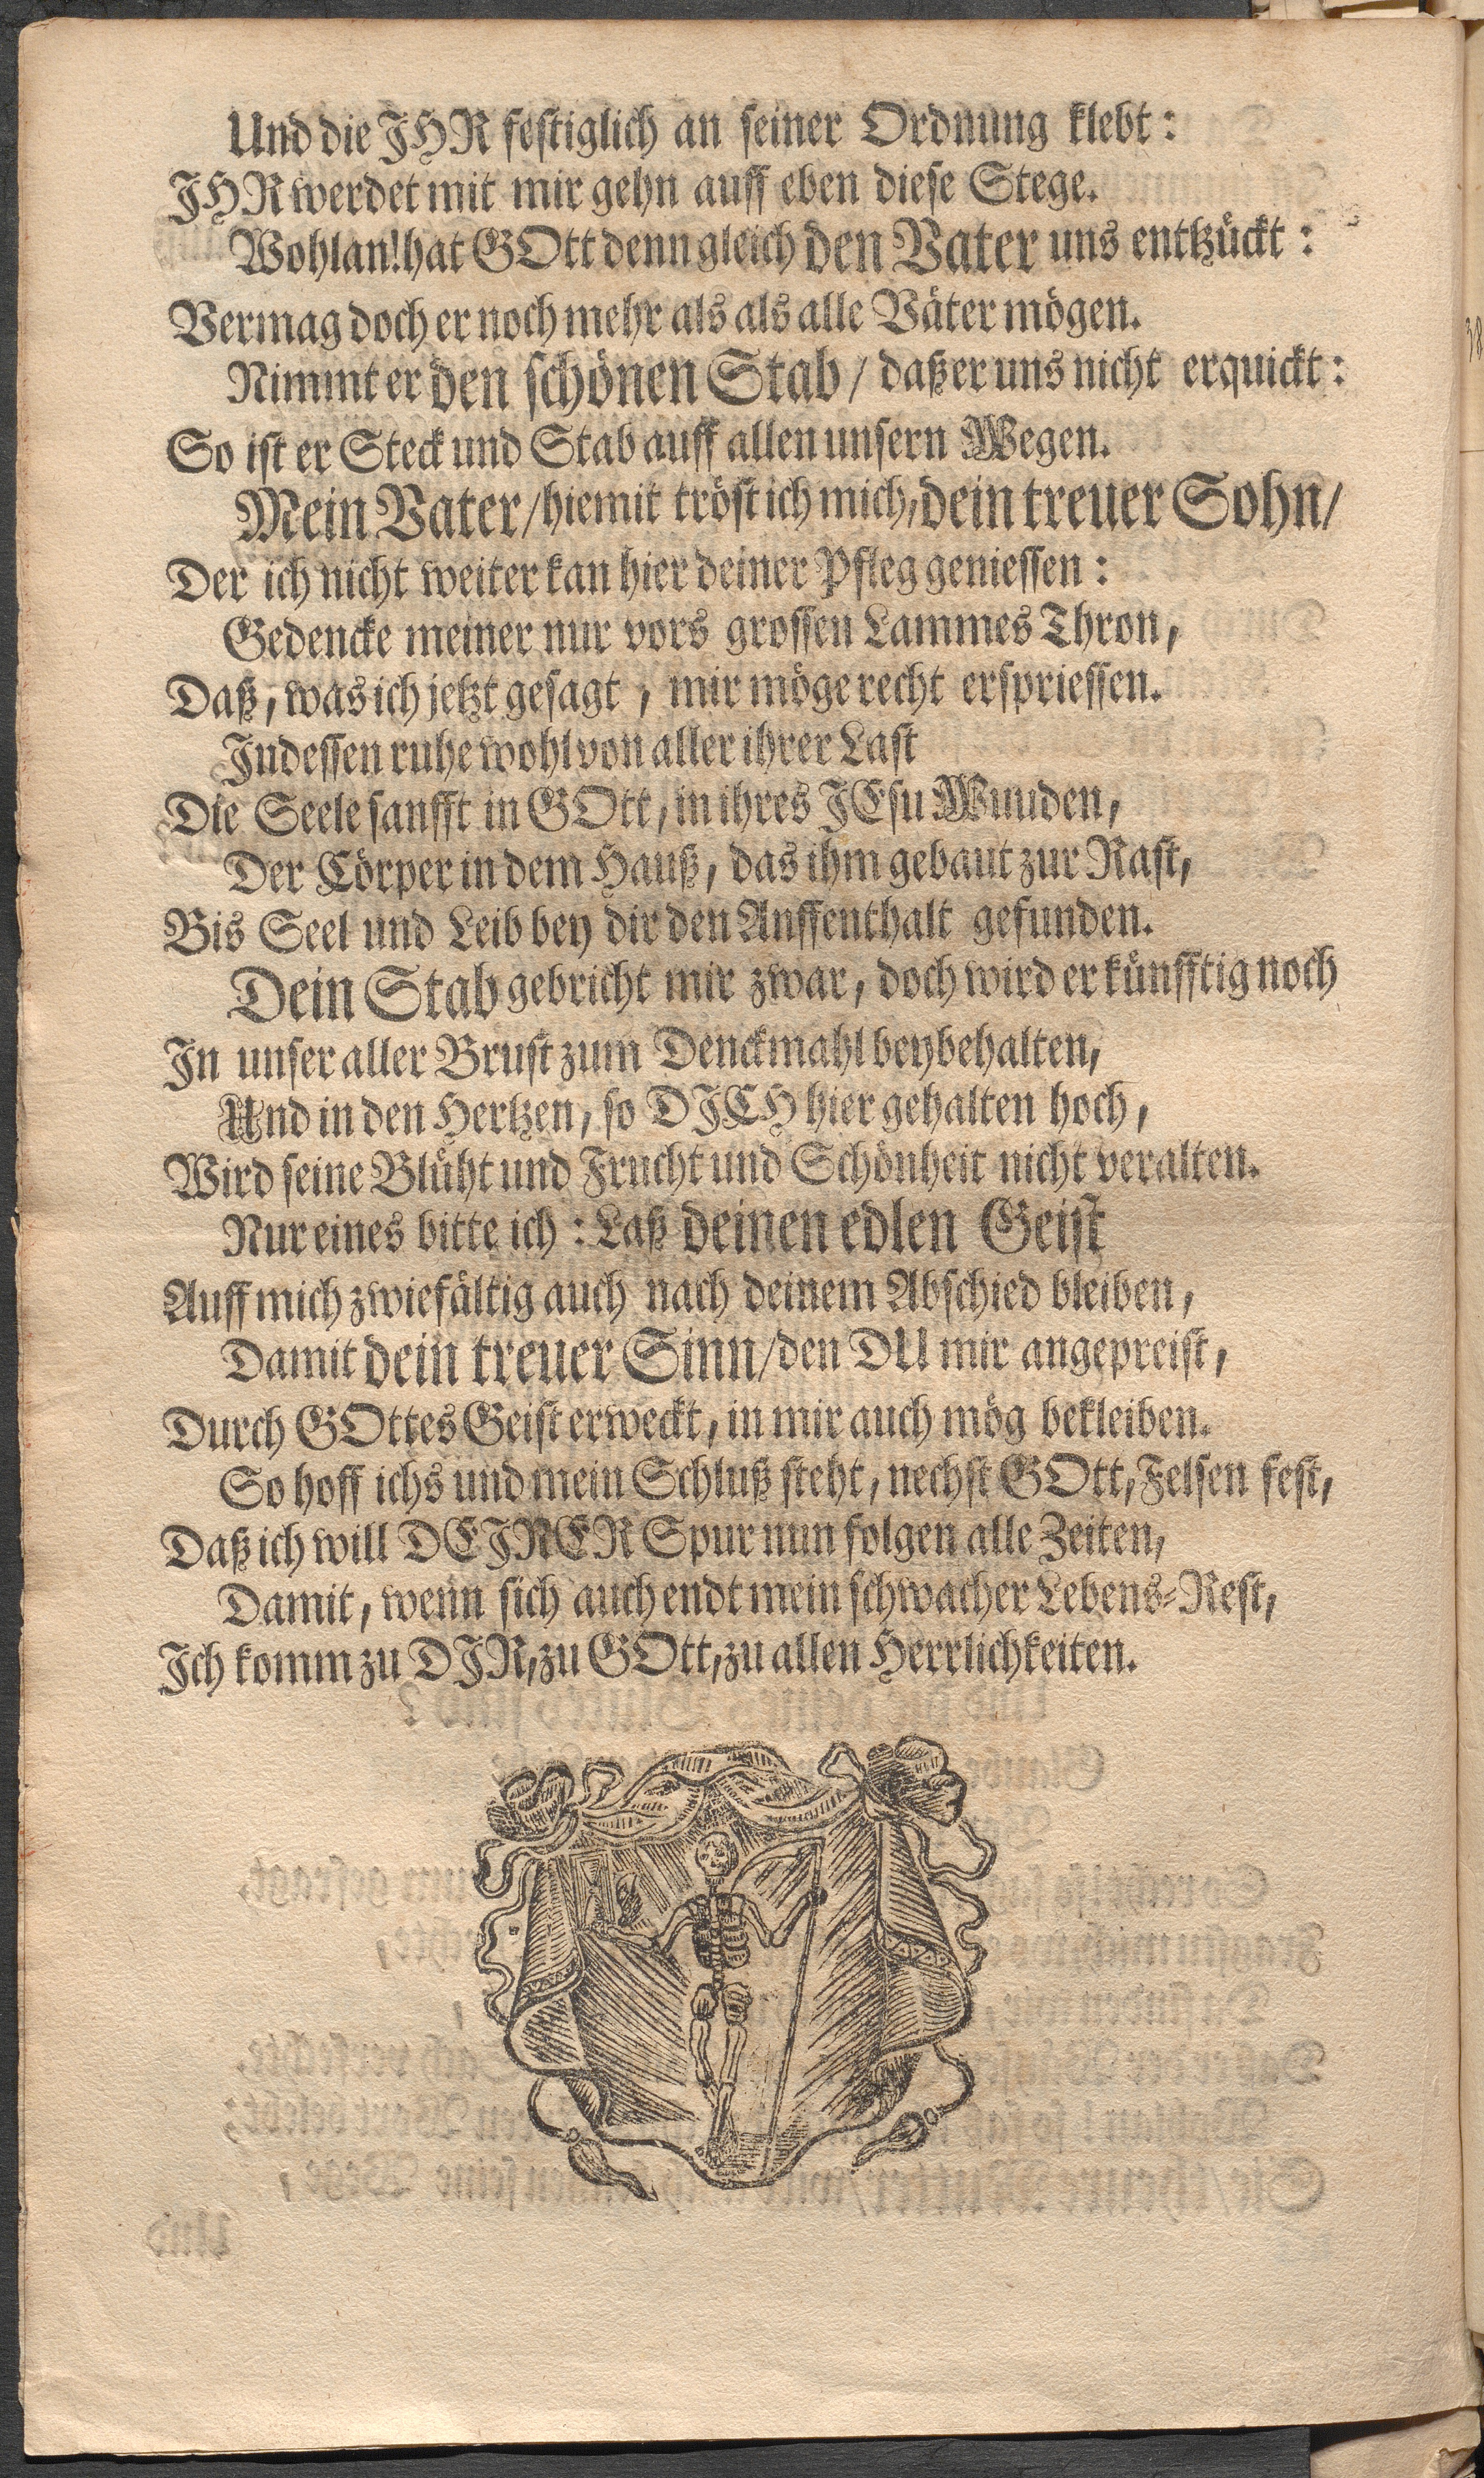 Und die JHR festiglich an seiner Ordnung klebt:
JHR werdet mit mir gehn auff eben diese Stege.
Wohlan! hat GOtt denn gleich den Vater uns entzückt:
Vermag doch er noch mehr als als alle Väter mögen.
Nimmt er den schönen Stab / daß er uns nicht erquickt:
So ist er Steck und Stab auff allen unsern Wegen.
Mein Vater / hiemit tröst ich mich, dein treuer Sohn /
Der ich nicht weiter kan hier deiner Pfleg geniessen:
Gedencke meiner nur vors grossen Lammes Thron,
Daß, was ich jetzt gesagt, mir möge recht erspriessen.
Indessen ruhe wohl von aller ihrer Last
Die Seele sanfft in GOtt, in ihres JEsu Wuuden,
Der Cörper in dem Hauß, das ihm gebaut zur Rast,
Bis Seel und Leib bey dir den Auffenthalt gefunden.
Dein Stab gebricht mir zwar, doch wird er künfftig noch
In unser aller Brust zum Denckmahl beybehalten,
Und in den Hertzen, so DJCH hier gehalten hoch,
Wird seine Blüht und Frucht und Schönheit nicht veralten.
Nur eines bitte ich: Laß deinen edlen Geist
Auff mich zwiefältig auch nach deinem Abschied bleiben,
Damit dein treuer Sinn / den DU mir angepreist,
Durch GOttes Geist erweckt, in mir auch mög bekleiben.
So hoff ichs und mein Schluß steht, nechst GOtt, Felsen fest,
Daß ich will DEJNER Spur nun folgen alle Zeiten,
Damit, wenn sich auch endt mein schwacher Lebens-Rest,
Ich komm zu DJR, zu GOtt, zu allen Herrlichkeiten.
38